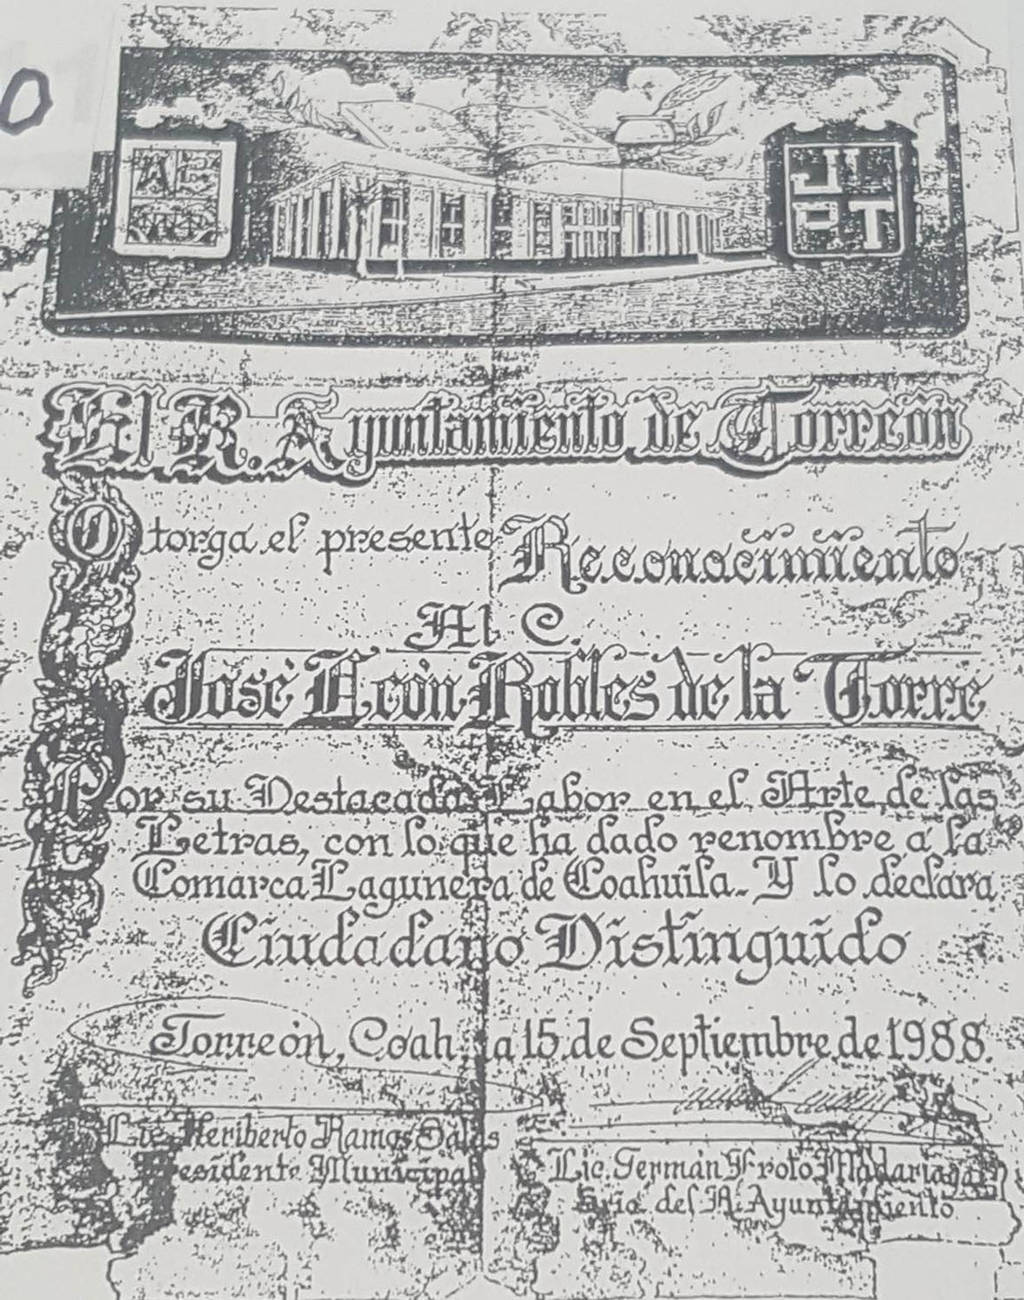 O
JI
PT
El R. Ayuntamiento de Torreón
Otorga el presente Reconocimiento
Al C.
José León Robles de la Torre
Por su Destacada Labor en el Arte de las
Letras, con lo que ha dado renombre a la
Comarca Lagunera de Coahuila. Y lo declara
Ciudadano Distinguido
Torreón, Coah. a 15 de Septiembre de 1988.
Lic. Heriberto Ramos Salas
Presidente Municipal
Lic. Germán Froto Madariaga
Srio. del R. Ayuntamiento